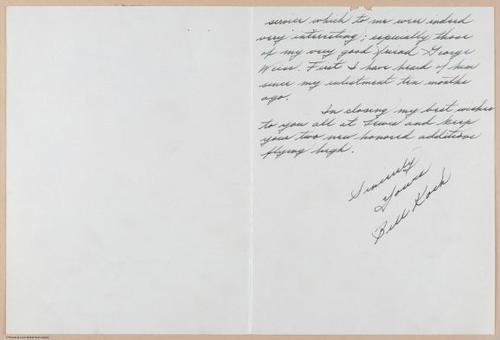 service which to me were indeed
very interesting; especially those
of my very good friend George
Weiss. First I have heard of him
since my enlistment ten months
ago.
In closing my best wishes
to you all at Lewis and keep
your two new honored additions
flying high.
Sincerely
Yours
Bill Koch